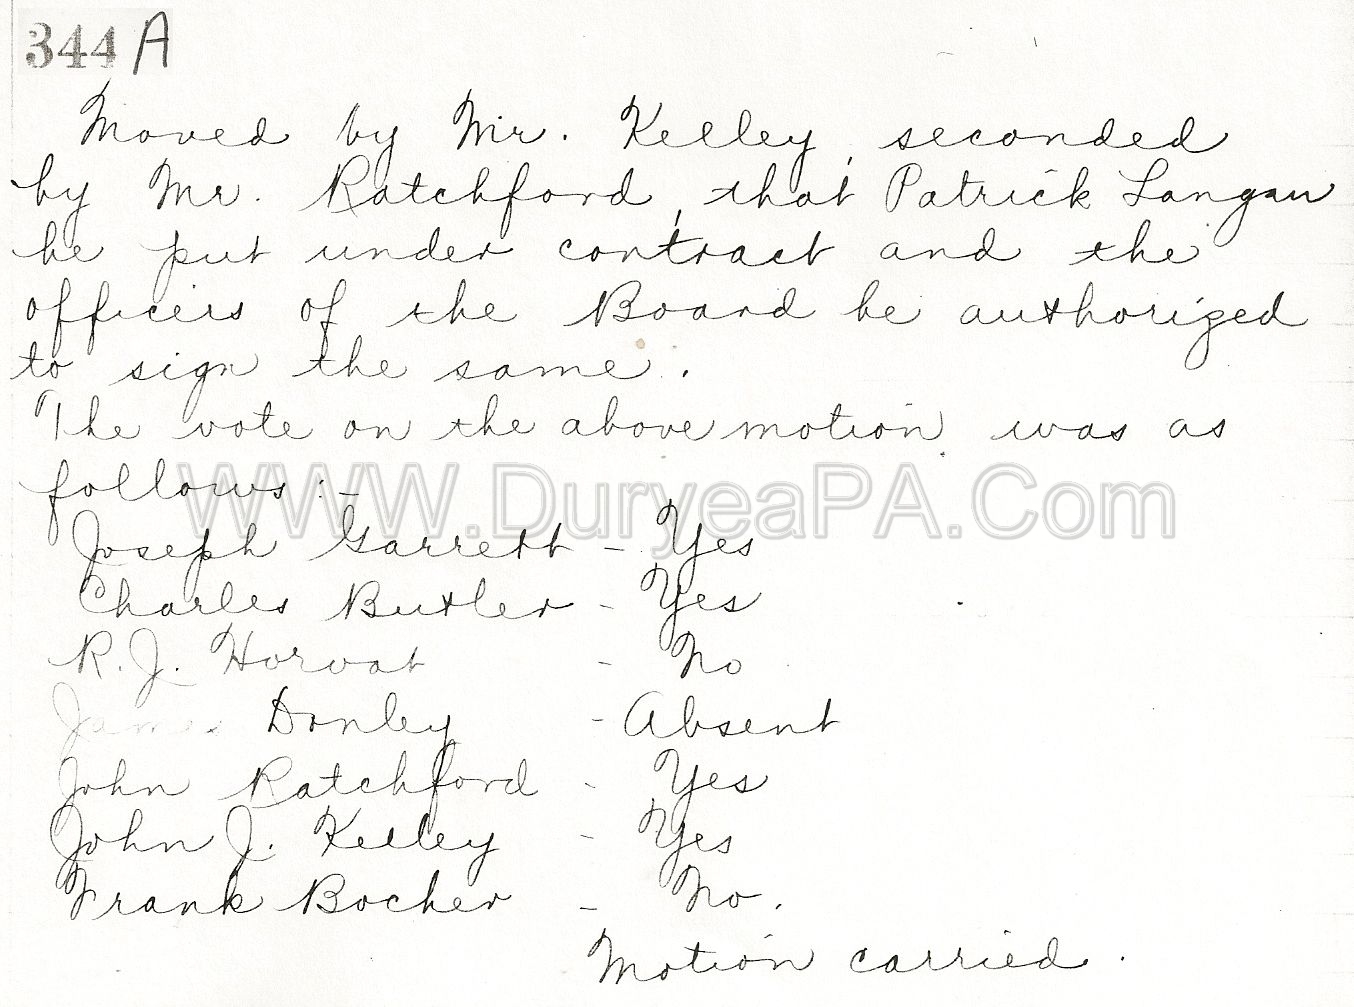 344 A
Moved by Mr. Kelley, seconded
by Mr. Ratchford, that Patrick Langan
be put under contract and the
officers of the Board be authorized
to sign the same.
The vote on the above motion was as
follows:-
WWW.DuryeaPA.Com
Joseph Garrett - Yes
Charles Butler - Yes
R. J. Horvat - No
James Donley - Absent
John Ratchford - Yes
John J. Kelley - Yes
Frank Bocher - No.
Motion carried.